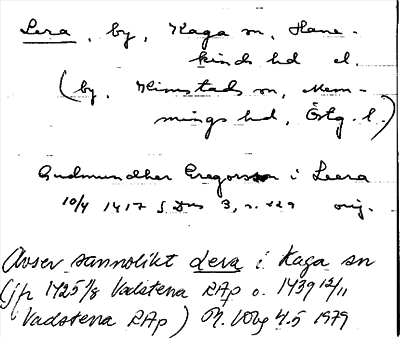 Lera, by, Kaga sn, Hane-
kinds hd el.
(by, Himstads sn, Mem-
mings hd, Östg. l.)
Gudmundher Gregorsson i Leera
10/4 1417 SDns 3, s. 229 orig.
Avser sannolikt Lera i Kaga sn
(jfr 1425 1/8 Vadstena RAp o. 1439 12/11
Vadstena RAp) 4.5 1979